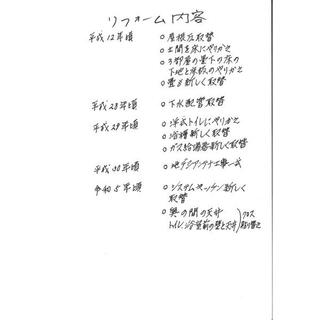 リフォーム内容
平成12年頃 ○屋根瓦取替
○土間を床にやりかえ
○3部屋の畳下の床の
下地と床板のやりかえ
○畳も新しく取替
平成28年頃 ○下水配管取替
平成29年頃 ○洋式トイレにやりかえ
○浴槽新しく取替
○ガス給湯器新しく取替
平成30年頃 ○地デジアンテナ工事一式
令和5年頃 ○システムキッチン新しく
取替
○奥の間の天井
トイレ、浴室前の壁と天井 クロス
貼り替え